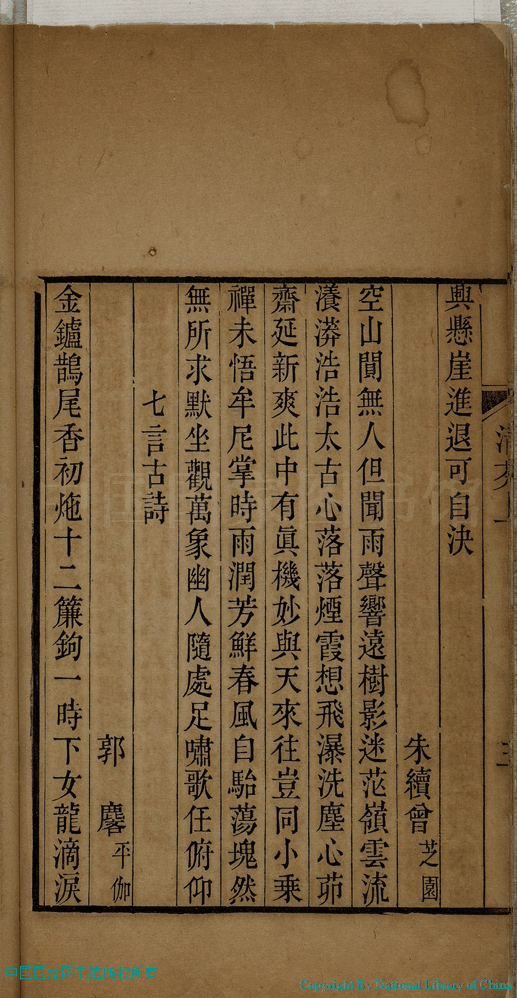 興懸崖進退可自決
朱續曾芝園
空山閴無人但聞雨聲響遠樹影迷茫嶺雲流
瀁漭浩浩太古心落落煙霞想飛瀑洗塵心茆
齋延新爽此中有眞機妙與天來往豈同小乗
禪未悟牟尼掌時雨潤芳鮮春風自駘蕩塊然
無所求默坐觀萬象幽人隨處足嘯歌任俯仰
七言古詩
郭麐平伽
金鑪鵲尾香初炧十二簾鉤一時下女龍滴淚
Copyright By National Library of China